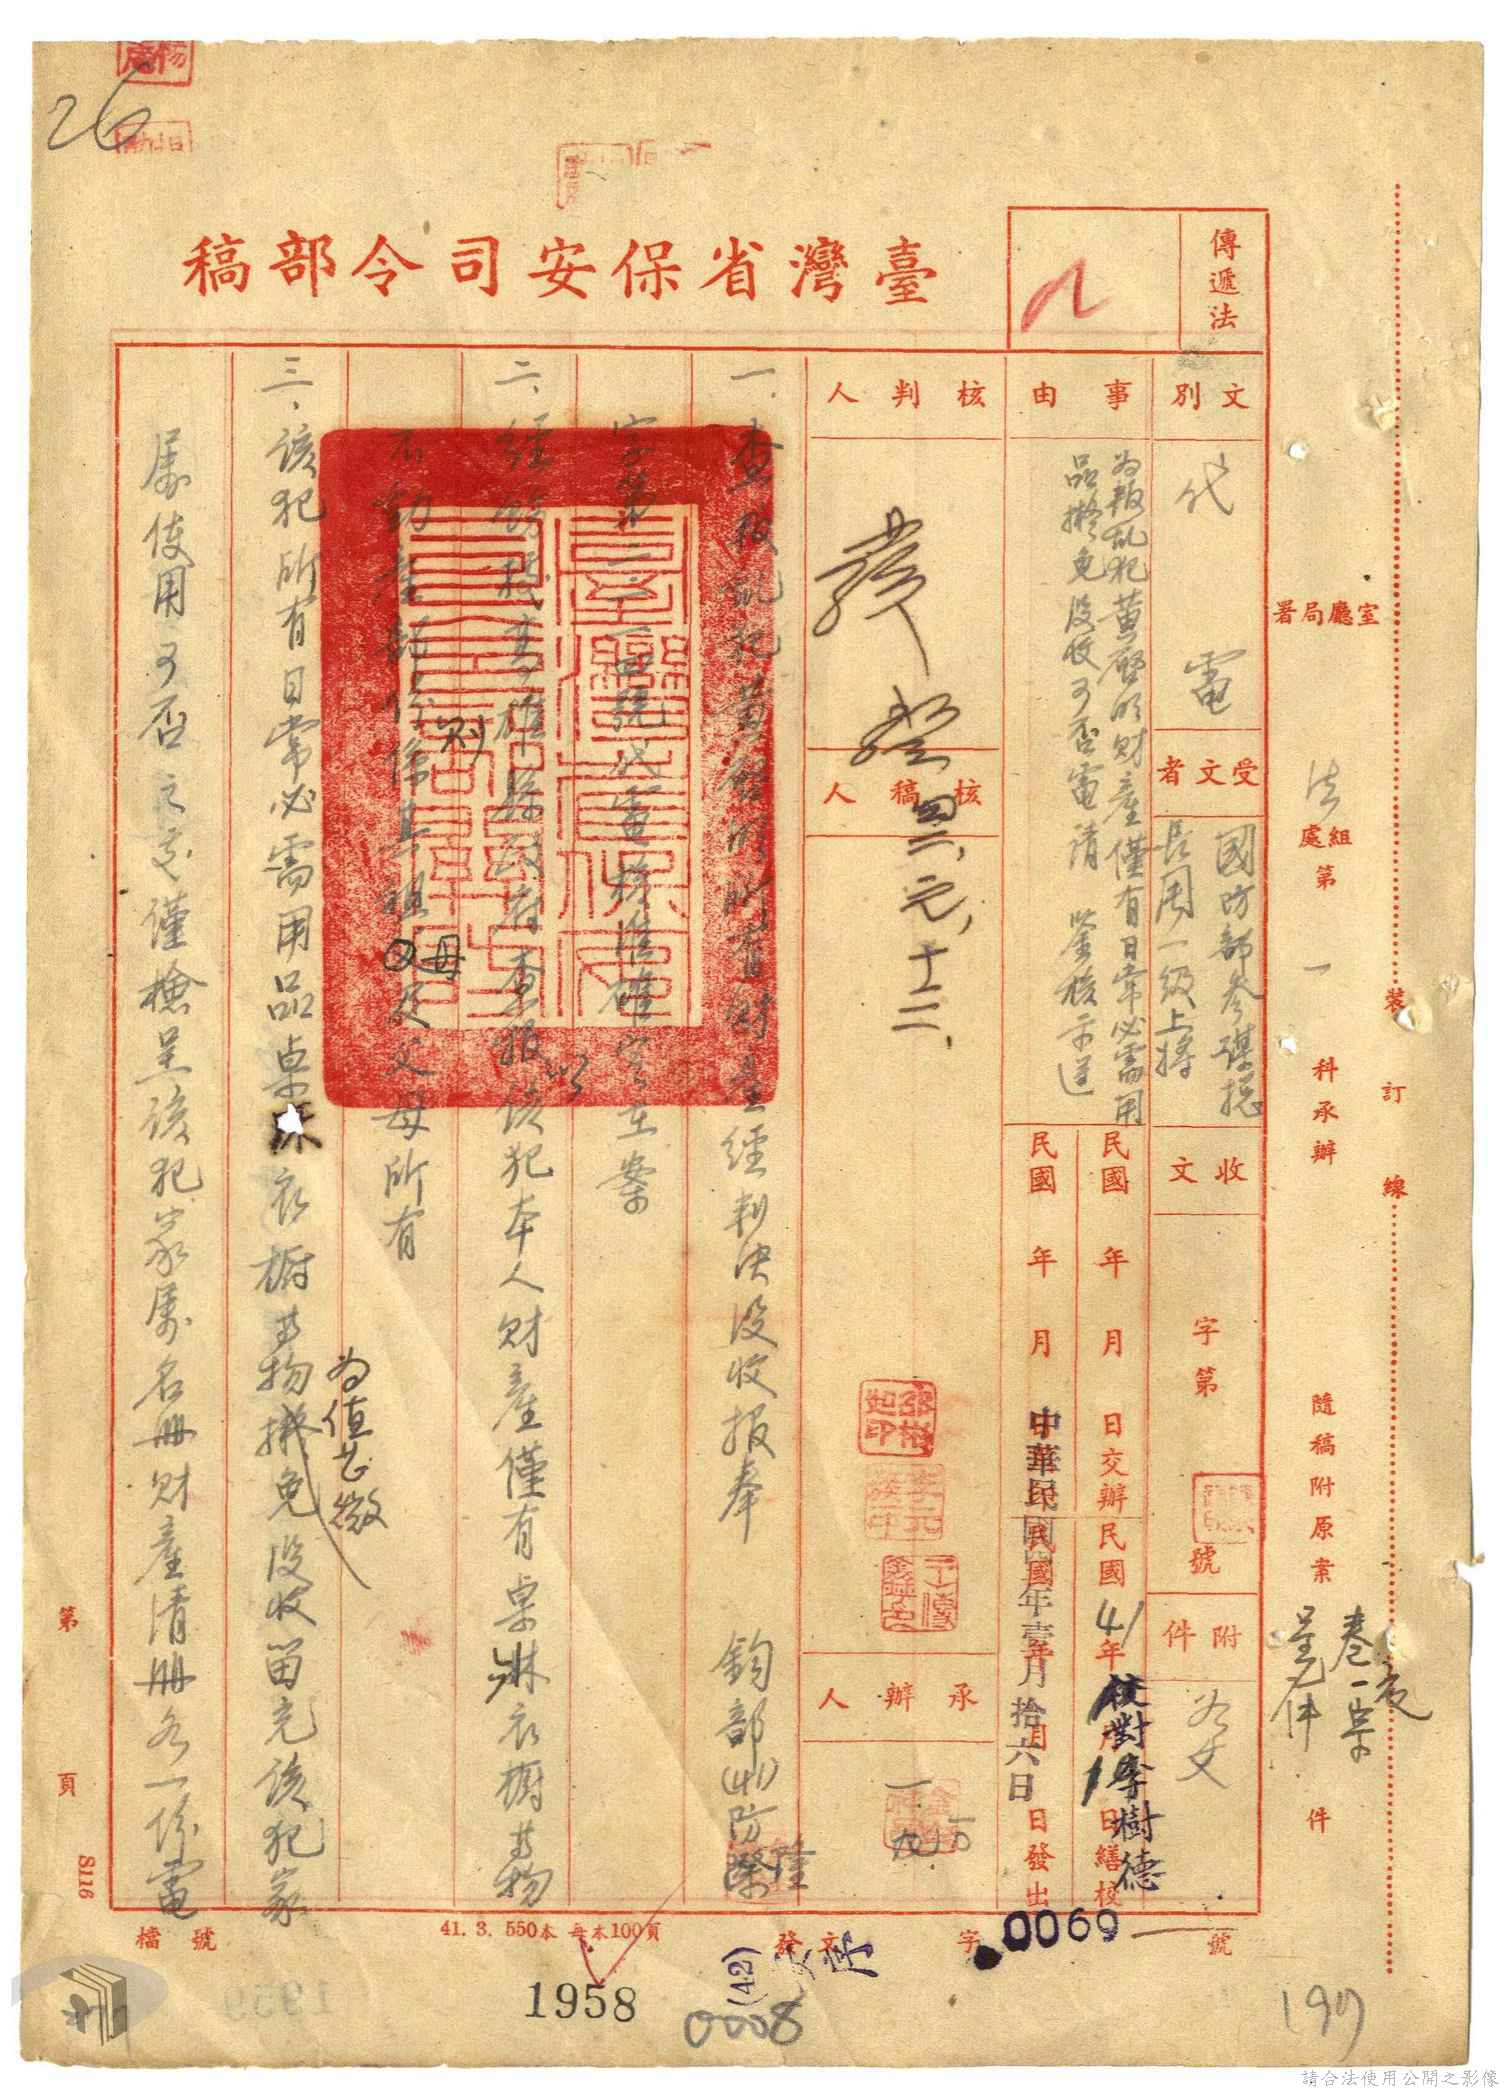 26
臺灣省保安司令部稿
傳遞法
文別
代電
受文者
國防部參謀總
長周一級上將
收文
字第
號
附件
如文
事由
為叛亂犯黃啓明財產僅有日常必需用
品擬免沒收可否電請 鑒核示遵
民國 年 月 日交辦
民國 41 年
日繕校
民國 年 月
日發出
中華民國
年壹月拾六日
校對李樹德
核判人
發
四二、元、十二、
核稿人
承辦人
一、查叛亂犯黃啓明所有財產經判決沒收報奉 鈞部(41)防隆
字第二二一四號代電核准確定在案
二、經飭據高雄縣政府查報該犯本人財產僅有桌床衣櫥等物
不動產部份則係其祖父母及父母所有
三、該犯所有日常必需用品桌床衣櫥等物為值甚微擬免沒收留充該犯家
屬使用可否之處謹檢呈該犯家屬名冊財產清冊各一份電
署局廳室
法
處組
第一科承辦
隨稿附原案
卷一宗
件
裝訂線
第 頁
S116
檔號
41. 3. 550本 每本100頁
發文
字
0069
號
(42)
1958
0008
197
請合法使用公開之影像